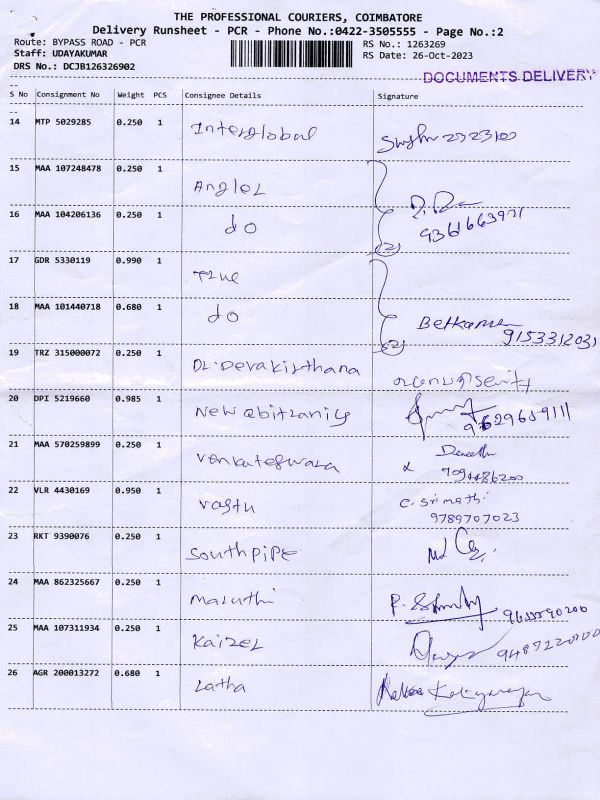 THE PROFESSIONAL COURIERS, COIMBATORE
Delivery Runsheet - PCR - Phone No.:0422-3505555 - Page No.:2
Route: BYPASS ROAD - PCR
Staff: UDAYAKUMAR
DRS No.: DCJB126326902
RS No.: 1263269
RS Date: 26-Oct-2023
DOCUMENTS DELIVERY
S No Consignment No Weight PCS Consignee Details Signature
14 MTP 5029285 0.250 1 Interglobal
15 MAA 107248478 0.250 1 Anglez
16 MAA 104206136 0.250 1 do
(2)
17 GDR 5330119 0.990 1 True
18 MAA 101440718 0.680 1 do
9153312031
(2)
19 TRZ 315000072 0.250 1 Dr. Devakirthana
20 DPI 5219660 0.985 1
21 MAA 570259899 0.250 1 Venkateswara
7094486200
22 VLR 4430169 0.950 1 Vastu C. Srimathi
9789707023
23 RKT 9390076 0.250 1 Southpipe
24 MAA 862325667 0.250 1 Maruthi
25 MAA 107311934 0.250 1 Kaizel
26 AGR 200013272 0.680 1 Latha